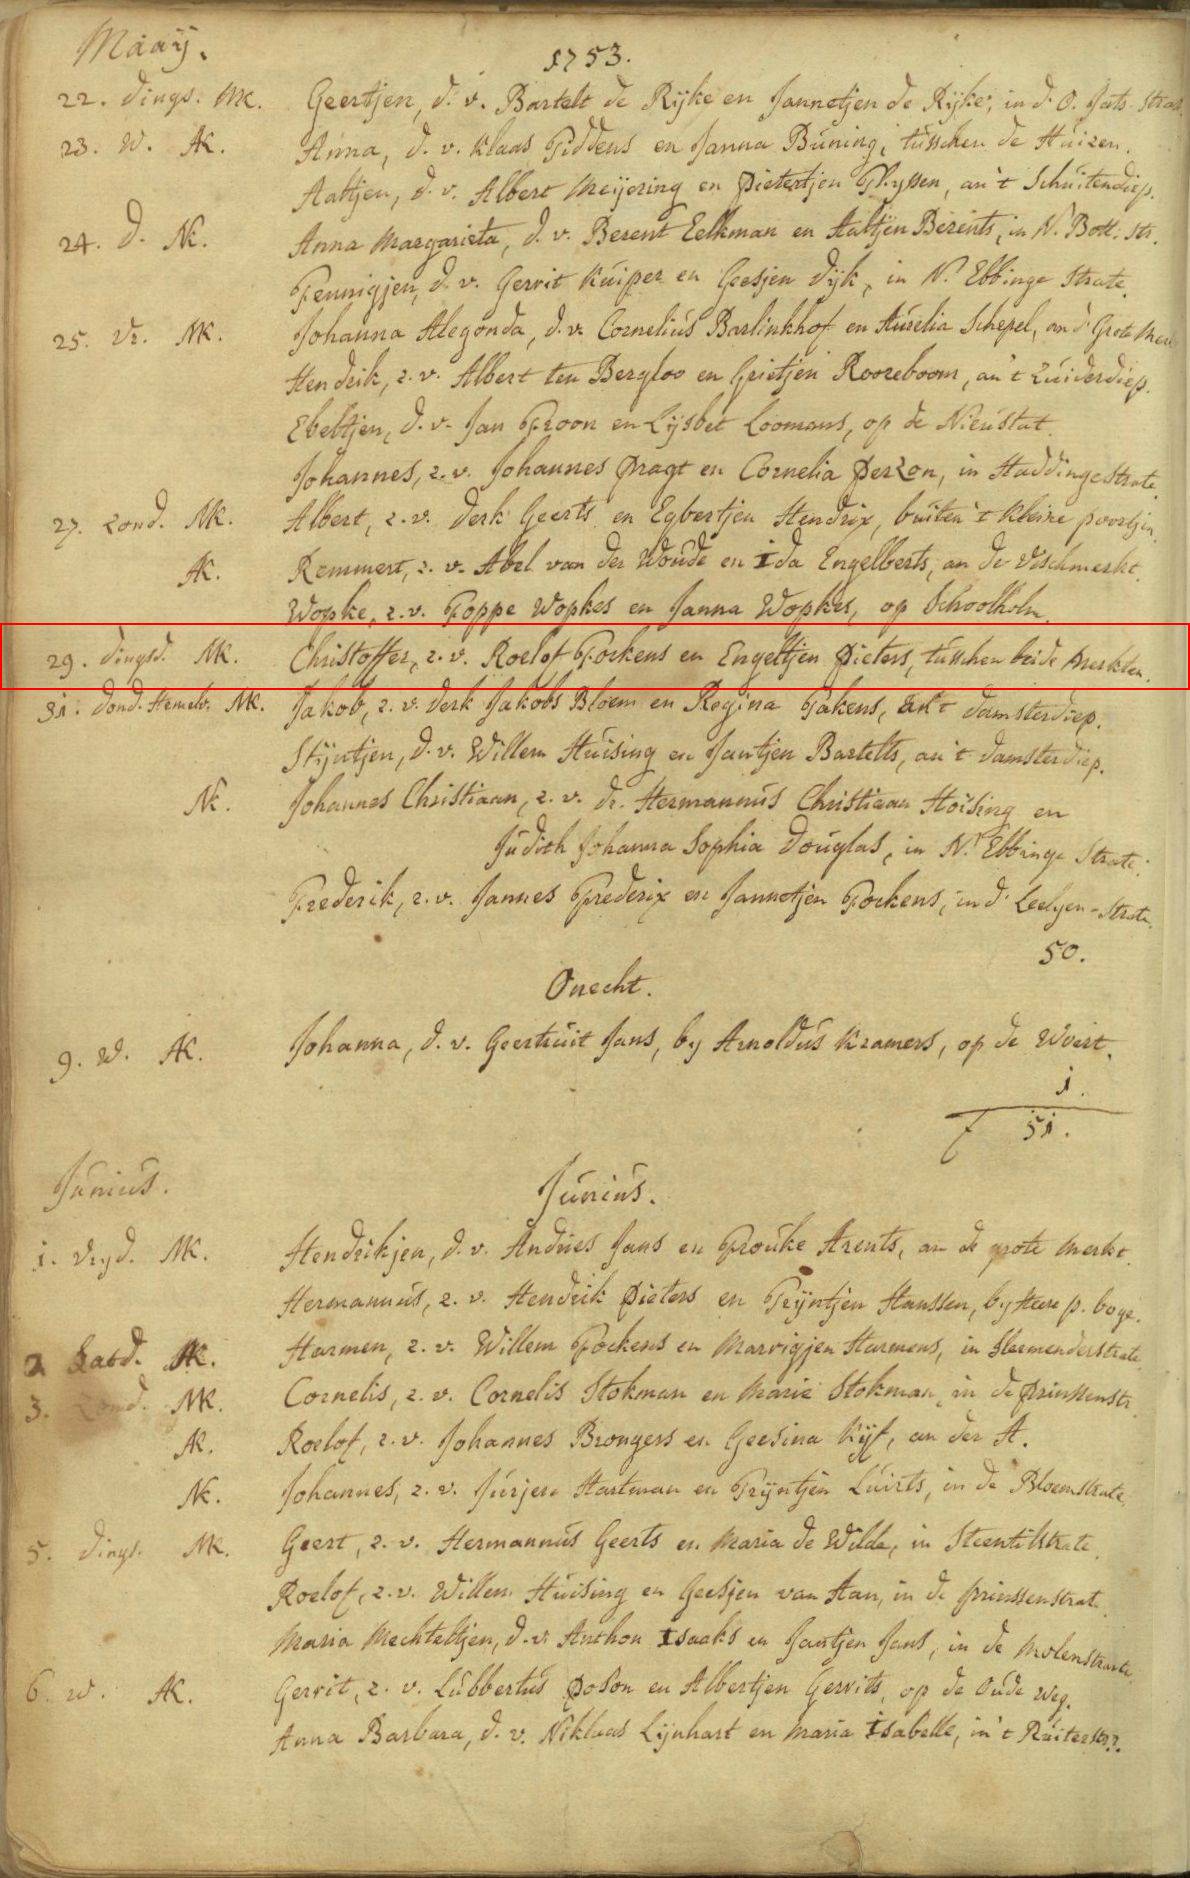 Maaÿ.
1753.
22. dings. MK. Geertjen, d. v. Bartelt de Rijke en Jannetjen de Rijke, in d' O. Jats Strat
23. W. AK. Anna, d. v. Klaas Piddens en Janna Buning, tusschen de Huizen.
Aaltjen, d. v. Albert Meijering en Pietertjen Thyssen, an 't Schuitendiep.
24. d. NK. Anna Margarieta, d. v. Berent Eelkman en Aaltjen Berents, in N. Bott. str.
Fennigjen, d. v. Gerrit Kuiper en Geesjen Dijk, in N. Ebbinge Strate.
25. Vr. MK. Johanna Alegonda, d. v. Cornelius Barlinkhof en Aurelia Schepel, an d' Grote Merk
Hendrik, z. v. Albert ten Bergloo en Grietjen Rooreboom, an 't Zuiderdiep.
Ebeltjen, d. v. Jan Proon en Lijsbet Loomans, op de Nieustat.
Johannes, z. v. Johannes Pragt en Cornelia Perzon, in Haddingestrate.
27. Zond. MK. Albert, z. v. Derk Geerts en Egbertjen Hendrix, buiten 't kleine poortjen.
AK. Remmert, z. v. Abel van der Woude en Ida Engelberts, an de Vischmerkt.
Wopke, z. v. Foppe Wopkes en Janna Wopkes, op Schoolholm.
29. dingsd. MK. Christoffer, z. v. Roelof Fockens en Engeltjen Pieters, tusschen beide Merkten.
31. dond. Hemelv. MK. Jakob, z. v. Derk Jakobs Bloem en Regina Takens, an 't Damsterdiep.
Stijntjen, d. v. Willem Huising en Jantjen Bartelts, an 't Damsterdiep.
NK. Johannes Christiaan, z. v. dr. Hermannus Christiaan Hoising en
Judith Johanna Sophia Douglas, in N. Ebbinge Strate.
Frederik, z. v. Jannes Frederix en Jannetjen Fockens, in d' Leelyen-Strate.
50.
Onecht.
9. W. AK. Johanna, d. v. Geertruit Jans, by Arnoldus Kramers, op de Weert.
1.
51.
Junius.
Junius.
1. Vryd. MK. Hendrikjen, d. v. Andries Jans en Frouke Arents, an de grote Merkt.
Hermannus, z. v. Hendrik Pieters en Trijntjen Hanssen, by Heere p. boge.
2 Satd. AK. Harmen, z. v. Willem Fockens en Marrigjen Harmens, in Sleemenderstrate
3. Zond. MK. Cornelis, z. v. Cornelis Stokman en Marie Stokman, in de Prinssenstr.
AK. Roelof, z. v. Johannes Brongers en Geesina Kijf, an der A.
NK. Johannes, z. v. Jurjen Hartman en Trijntjen Luirts, in de Bloemstrate.
5. dings. MK. Geert, z. v. Hermannus Geerts en Maria de Wilde, in Steentilstrate.
Roelof, z. v. Willem Huising en Geesjen van Aan, in de prinssenstrat.
Maria Mechteltjen, d. v. Anthon Isaaks en Jantjen Jans, in de Molenstrate.
6. W. AK. Gerrit, z. v. Lubbertus Poson en Albertjen Gerrits, op de Oude Weg.
Anna Barbara, d. v. Niklaas Lijnhart en Maria Isabelle, in 't Ruiterstr.